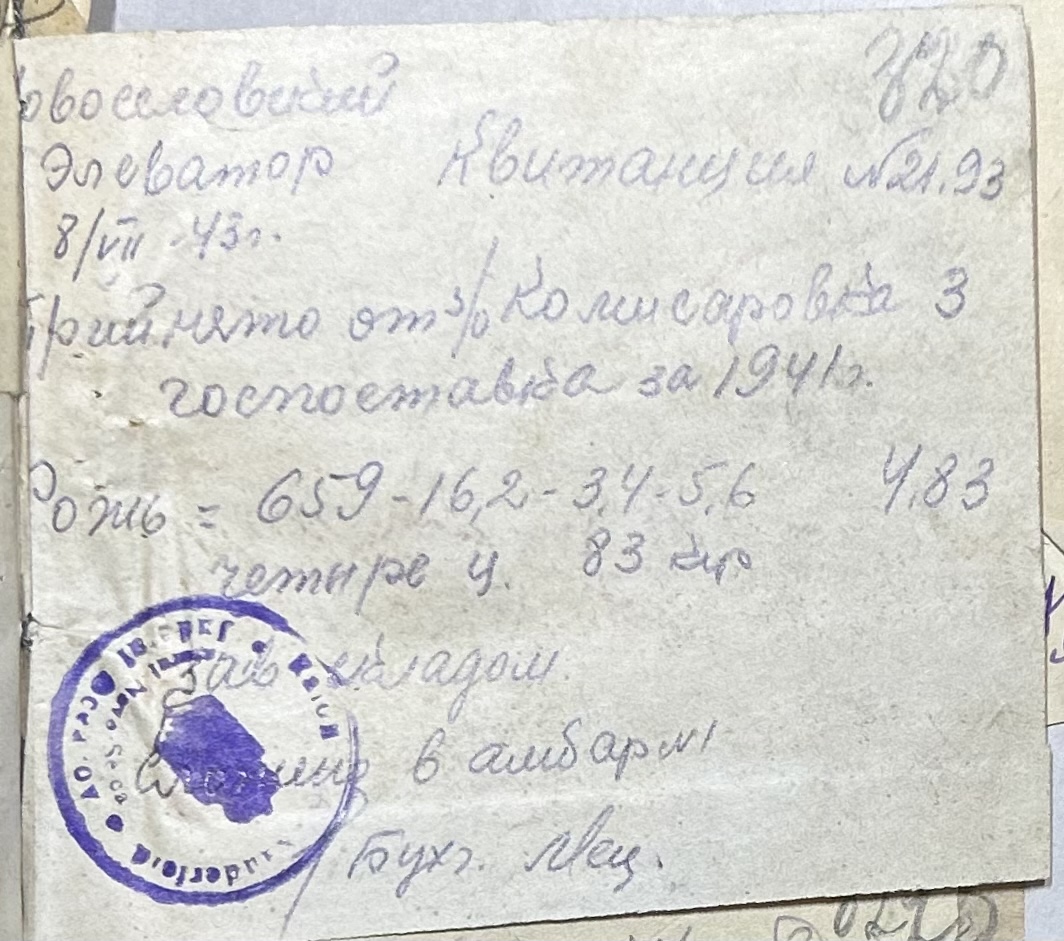 320
овоселовский
Элеватор Квитанция №21.93
8/VII 43г.
Прийнято от з/о Комисаровка 3
госпоставка за 1941г.
Рожь = 659-16,2-3,4-5,6 4,83
четыре ц. 83 кгр
Зав складом.
в амбар №1
Бухг.